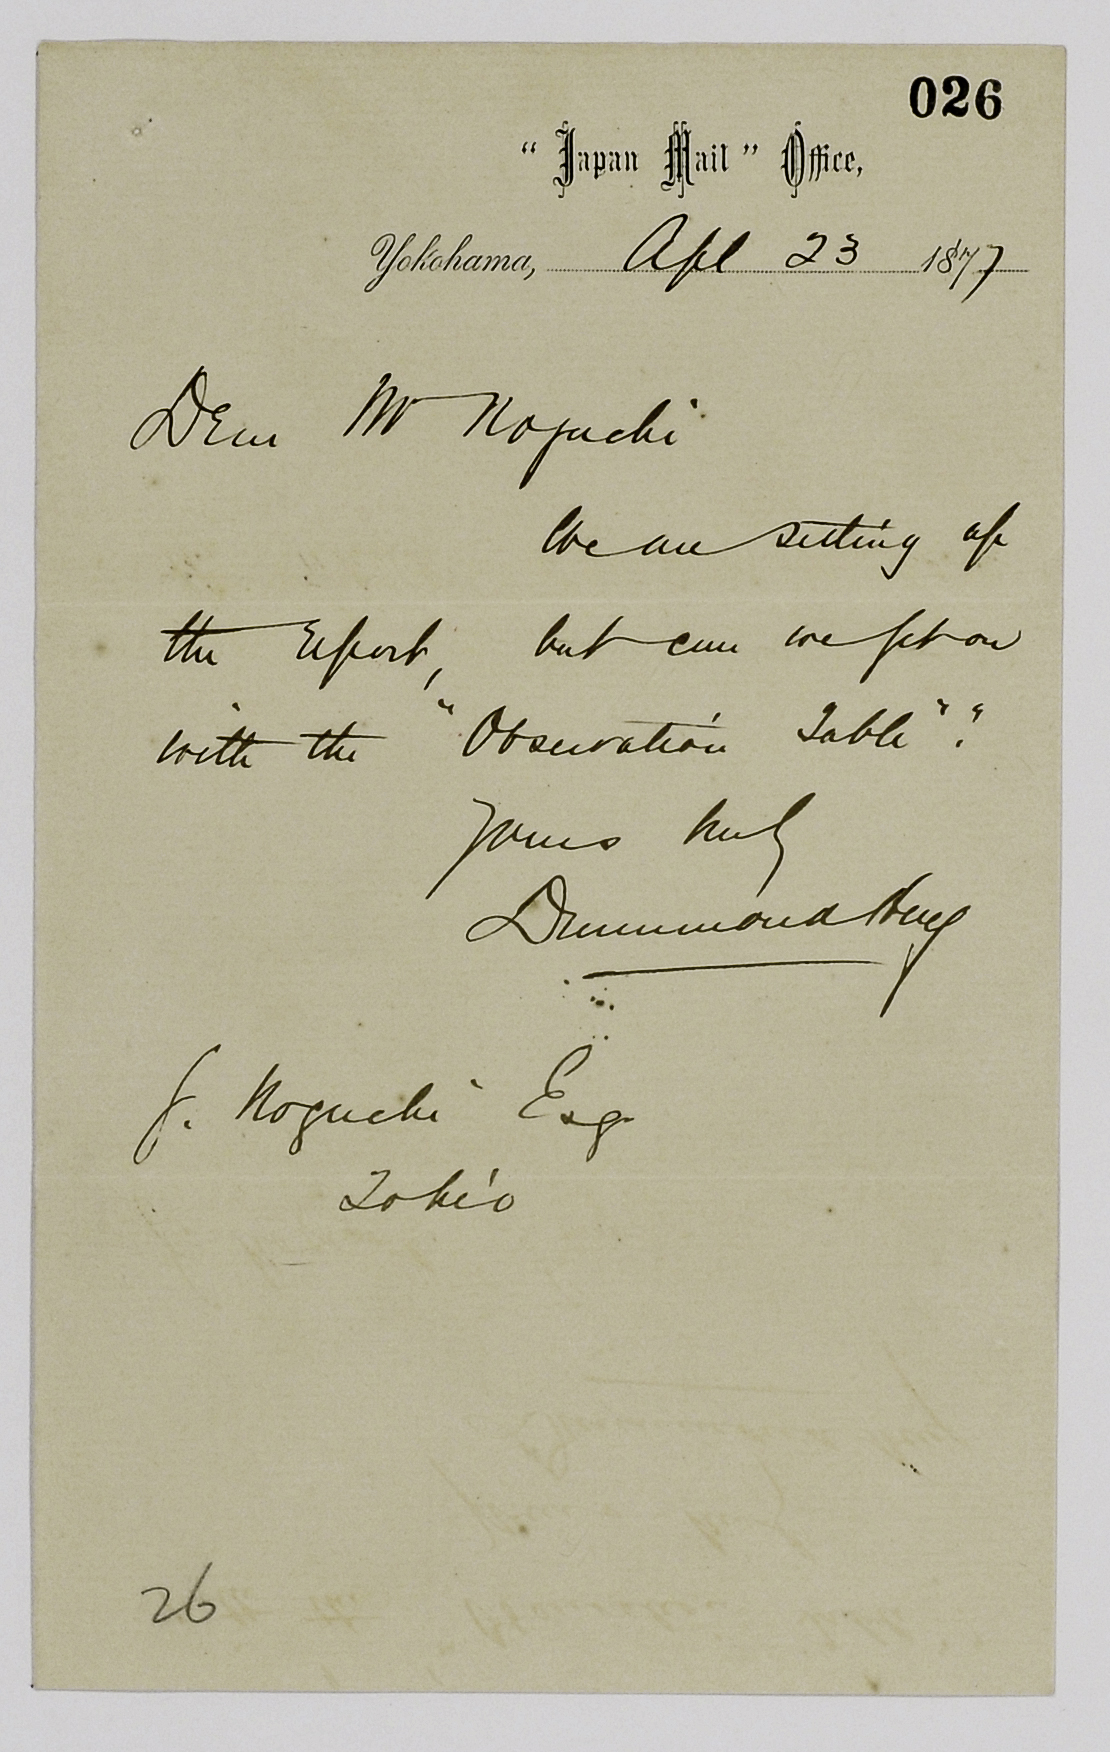 026
"Japan Mail" Office,
Yokohama, Apl 23 1877
Dear Mr Noguchi
We are setting up
the report, but can we get on
with the "Observation Table"?
Yours truly
Drummond Hay
J. Noguchi Esq
Tokio
26